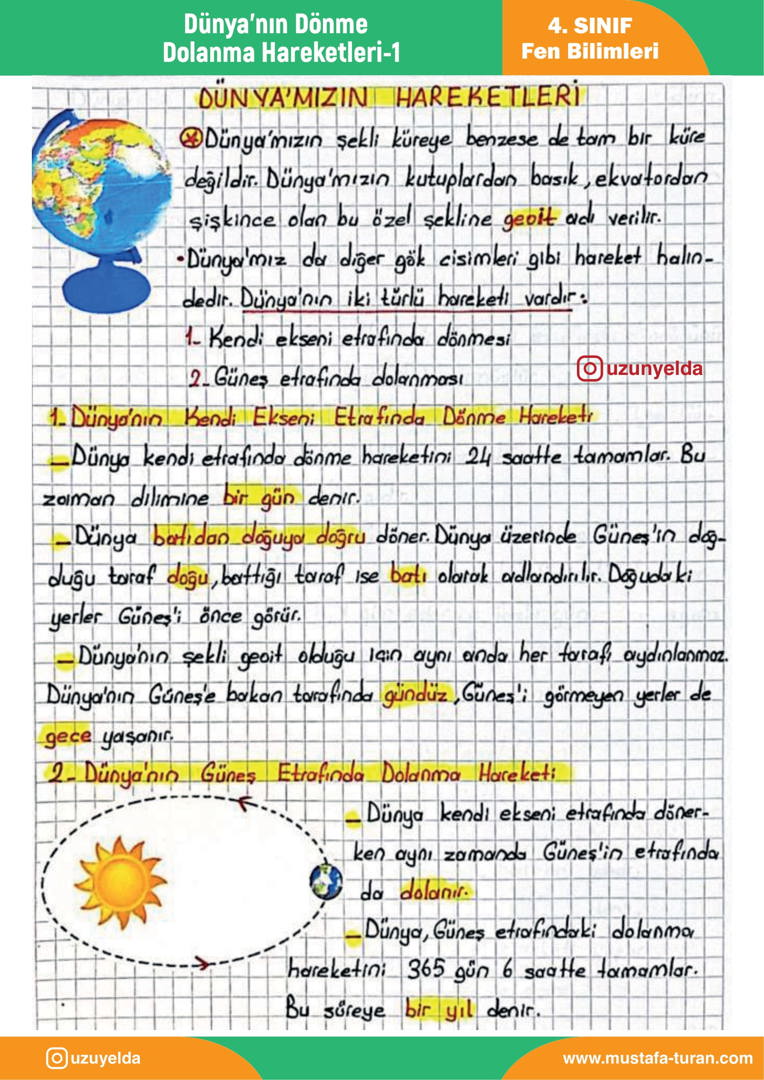 Dünya'nın Dönme
Dolanma Hareketleri-1
4. SINIF
Fen Bilimleri
DÜNYA'MIZIN HAREKETLERİ
Dünya'mızın şekli küreye benzese de tam bir küre
değildir. Dünya'mızın kutuplardan basık, ekvatordan
şişkince olan bu özel şekline geoit adı verilir.
•Dünya'mız da diğer gök cisimleri gibi hareket halin-
dedir. Dünya'nın iki türlü hareketi vardır:
1- Kendi ekseni etrafında dönmesi
2- Güneş etrafında dolanması
uzunyelda
1- Dünya'nın Kendi Ekseni Etrafında Dönme Hareketi
- Dünya kendi etrafında dönme hareketini 24 saatte tamamlar. Bu
zaman dilimine bir gün denir.
- Dünya batıdan doğuya doğru döner. Dünya üzerinde Güneş'in doğ-
duğu taraf doğu, battığı taraf ise batı olarak adlandırılır. Doğudaki
yerler Güneş'i önce görür.
- Dünya'nın şekli geoit olduğu için aynı anda her tarafı aydınlanmaz.
Dünya'nın Güneş'e bakan tarafında gündüz, Güneş'i görmeyen yerler de
gece yaşanır.
2- Dünya'nın Güneş Etrafında Dolanma Hareketi
- Dünya kendi ekseni etrafında döner-
ken aynı zamanda Güneş'in etrafında
da dolanır.
- Dünya, Güneş etrafındaki dolanma
hareketini 365 gün 6 saatte tamamlar.
Bu süreye bir yıl denir.
uzuyelda
www.mustafa-turan.com